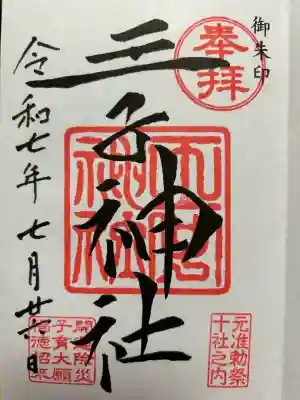 御朱印
奉拝
王子神社
令和七年七月廿六日
元准勅祭
十社之内
開運除災
子育大願
福徳招来